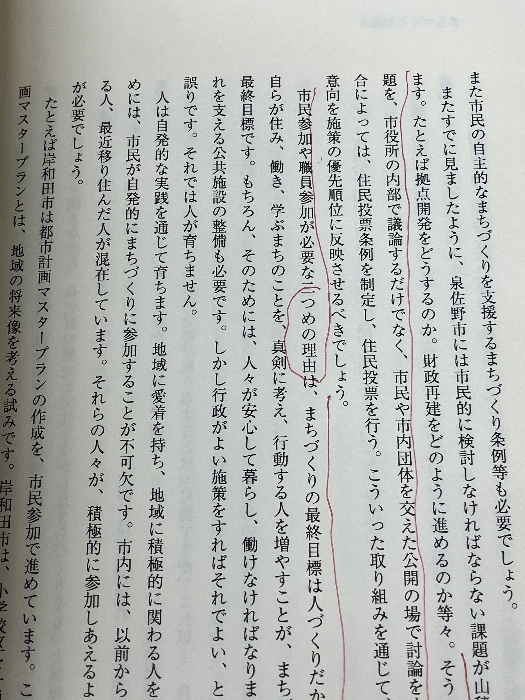 また市民の自主的なまちづくりを支援するまちづくり条例等も必要でしょう。
またすでに見ましたように、泉佐野市には市民的に検討しなければならない課題が山積
ます。たとえば拠点開発をどうするのか。財政再建をどのように進めるのか等々。そう
題を、市役所の内部で議論するだけでなく、市民や市内団体を交えた公開の場で討論を
合によっては、住民投票条例を制定し、住民投票を行う。こういった取り組みを通じて、
意向を施策の優先順位に反映させるべきでしょう。
市民参加や職員参加が必要な二つめの理由は、まちづくりの最終目標は人づくりだか
自らが住み、働き、学ぶまちのことを、真剣に考え、行動する人を増やすことが、まち
最終目標です。もちろん、そのためには、人々が安心して暮らし、働けなければなりま
れを支える公共施設の整備も必要です。しかし行政がよい施策をすればそれでよい、と
誤りです。それでは人が育ちません。
人は自発的な実践を通じて育ちます。地域に愛着を持ち、地域に積極的に関わる人を
めには、市民が自発的にまちづくりに参加することが不可欠です。市内には、以前から
る人、最近移り住んだ人が混在しています。それらの人々が、積極的に参加しあえるよ
が必要でしょう。
たとえば岸和田市は都市計画マスタープランの作成を、市民参加で進めています。こ
画マスタープランとは、地域の将来像を考える試みです。岸和田市は、小学校区ご